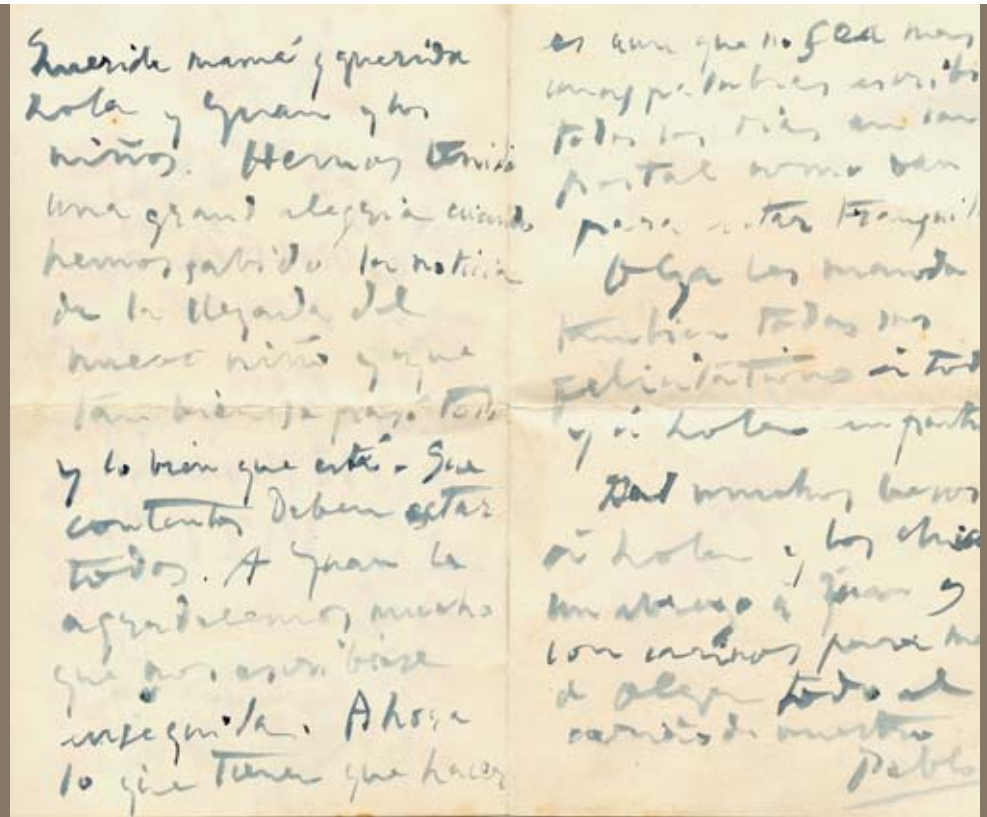 Querida mamá y querida
Lola y Juan y los
niños. Hemos tenido
una grand alegria cuando
hemos sabido la noticia
de la llegada del
nuevo niño y que
tan bien se pasó todo
y lo bien que está. Que
contentos Deben estar
todos. A Juan le
agradecemos mucho
que nos escribiese
enseguida. Ahora
lo que tienen que hacer
es aun que no sea mas
unas palabras escribi
todos los dias en una
postal como van
para estar tranquil
Olga les manda
tambien todas sus
felicitations á tod
y á Lola en parti
Dad muchos besos
á Lola y los chic
un abrazo á Juan y
con cariños para ma
de Olga todo el
cariño de vuestro
Pablo